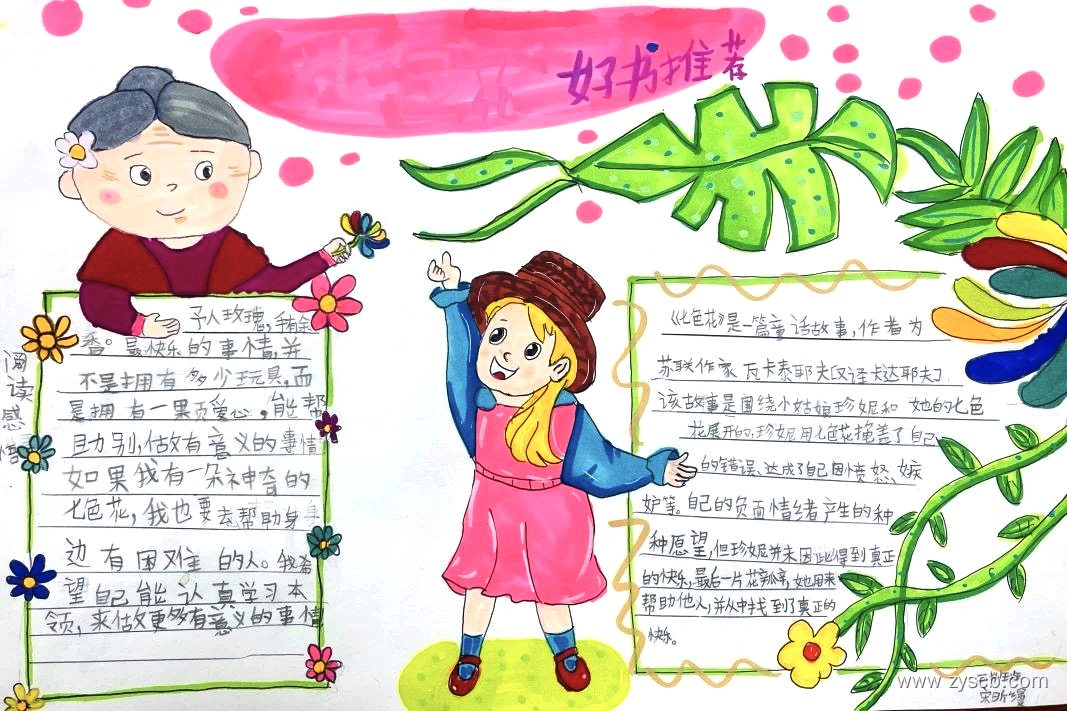 好书推荐
阅读感悟
予人玫瑰,手有余
香。最快乐的事情,并
不是拥有多少玩具,而
是拥有一颗爱心,能帮
助别,做有意义的事情
如果我有一朵神奇的
七色花,我也要去帮助身
边有困难的人。我希
望自己能认真学习本
领,来做更多有意义的事情
《七色花》是一篇童话故事,作者为
苏联作家瓦卡泰耶夫[又译卡达耶夫]
该故事是围绕小姑娘珍妮和她的七色
花展开的,珍妮用七色花掩盖了自己
的错误、达成了自己因愤怒、嫉
妒等。自己的负面情绪者产生的种
种愿望,但珍妮并未因此得到真正
的快乐,最后一片花瓣,她用来
帮助他人,并从中找到了真正的
快乐。
www.zyseb.com